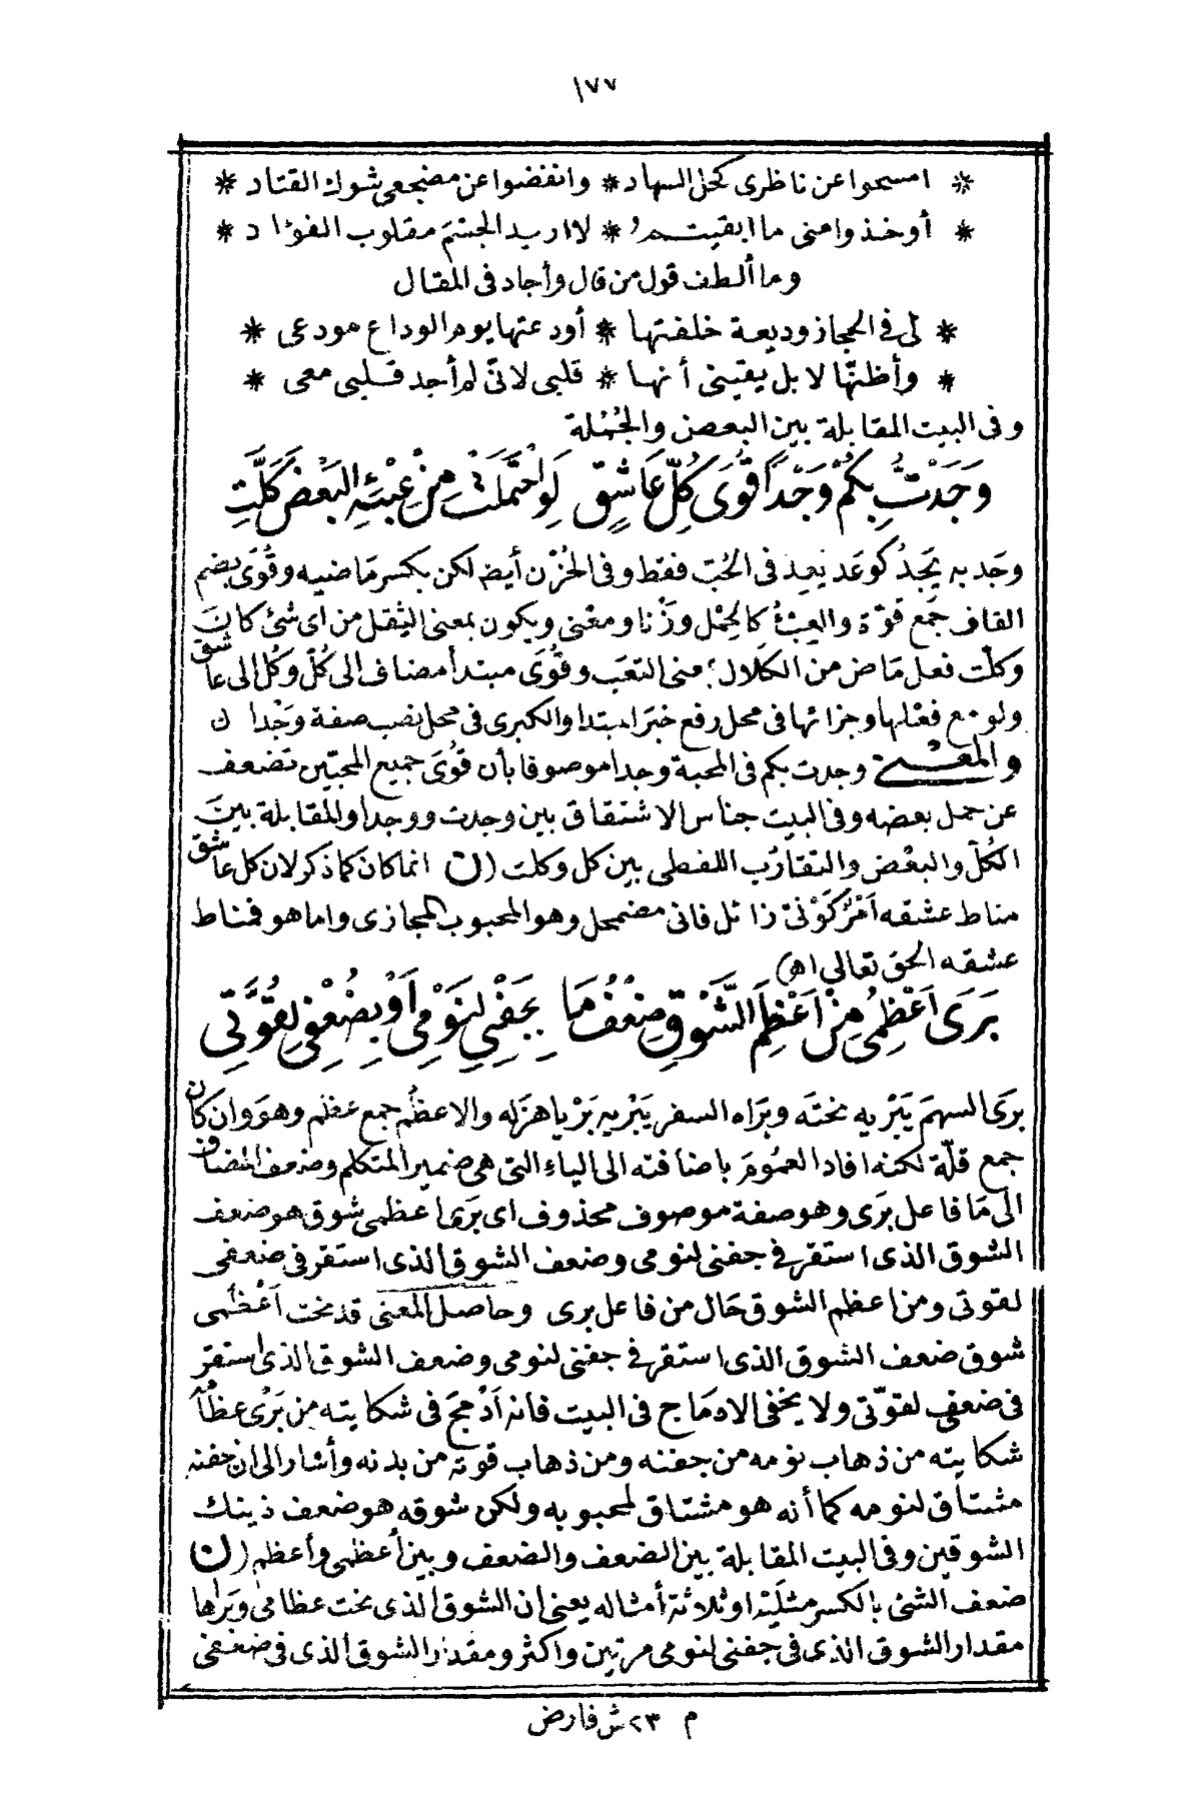 ١٧٧
* امسحوا عن ناظرى كحل السهاد * وانفضوا عن مضجعى شوك القتاد *
* أوخذوا منى ما ابقيتمو * لا اريد الجسم مقلوب الفؤاد *
وما ألطف قول من قال وأجاد فى المقال
* لى فى الحجاز وديعة خلفتها * أودعتها يوم الوداع مودعى *
* وأظنّها لا بل يقينى أنها * قلبى لانّى لم أجد قلبى معى *
وفى البيت المقابلة بين البعض والجُمْلة
وَجَدْتُ بِكُمْ وَجْدًا قُوَى كُلِّ عَاشِقٍ لَوِ احْتَمَلَتْ مِنْ عِبْئِهِ البَعْضَ كَلَّتِ
وجَد به يَجَدُ كوَعَد يَعِد فى الحُبّ فقط وفى الحُزْن أيضا لكن بكسر مَاضيه وقُوَى بضم
القاف جَمع قوّة والعِبْءُ كالحِمْل وَزْنا ومعْنى ويكون بمعنى الثِقل من اى شئ كانَ
وكلّت فعل مَاض من الكلَال بمعنى التعَب وقُوَى مبتدأ مضاف الى كُلّ وكُل الى عاشق
ولو مع فعْلها وجزائها فى محل رفع خبَر المبتدا والكبرى فى محل نصب صفة وَجْدا ن
والمعْنى وجدت بكم فى المحبة وجدا موصوفا بأن قُوَى جميع المحبّين تضعف
عن حمل بعضه وفى البيت جناس الاشتقاق بين وجدت ووجدا والمقابلة بينَ
الكُلّ والبعْض والتقارُب اللفظى بين كل وكلت (ن انما كانَ كما ذكر لان كل عاشق
مناط عشقه اَمْرٌ كَوْنىّ زائل فانى مضمحل وهو المحبوب المجازى واما هو فمناط
عشقه الحق تعالى اهـ)
بَرَى اَعْظُمِى مِنْ اَعْظَمِ الشَّوْقِ ضِعْفُ مَا بِجَفْنِى لِنَوْمِى اَوْ بِضُعْفِى لِقُوَّتِى
برَى السهمَ يَبْريه نحتَه وبَرَاه السفر يَبْريه بَرْيا هزَله والاعظُم جمع عظم وهوَ وان كان
جمع قلّة لكنه افاد العمُومَ باضافته الى الياء التى هى ضمير المتكلم وضعف المضاف
الى مَا فاعل بَرَى وهو صفة موصوف محذوف اى بَرَى اعظمى شوق هو ضعف
الشوق الذى استقر فى جفنى لنومى وضعف الشوق الذى استقر فى ضعفى
لقوتى ومن اعظم الشوق حَال من فاعل برى وحاصل المعنى قد نحت اَعْظُمى
شوق ضعف الشوق الذى استقر فى جفنى لنومى وضعف الشوق الذى استقر
فى ضعفى لقوّتى ولا يخفى الادمَاج فى البيت فانه اَدْمَجَ فى شكايته من بَرْى عظامه
شكايته من ذهاب نومه من جفنه ومن ذهاب قوته من بدنه وأشار الى ان جفنه
مشتاق لنومه كما أنه هو مشتاق لمحبوبه ولكن شوقه هو ضعف ذينك
الشوقين وفى البيت المقابلة بين الضعف والضعف وبين أعظمى وأعظم (ن
ضعف الشئ بالكسر مثلَيْه او ثلاثة أمثاله يعنى ان الشوق الذى نحت عظامى وبَراها
مقدار الشوق الذى فى جفنى لنومى مرتين واكثر ومقدار الشوق الذى فى ضعفى
م ٢٣ ش فارض